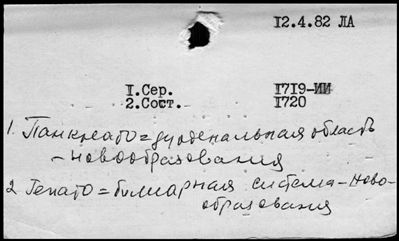 12.4.82 ЛА
1.Сер. 1719-ИИ
2.Сост. 1720
1. Панкреато=дуоденальная область
- новообразования
2 Гепато=билиарная система-ново-
образования